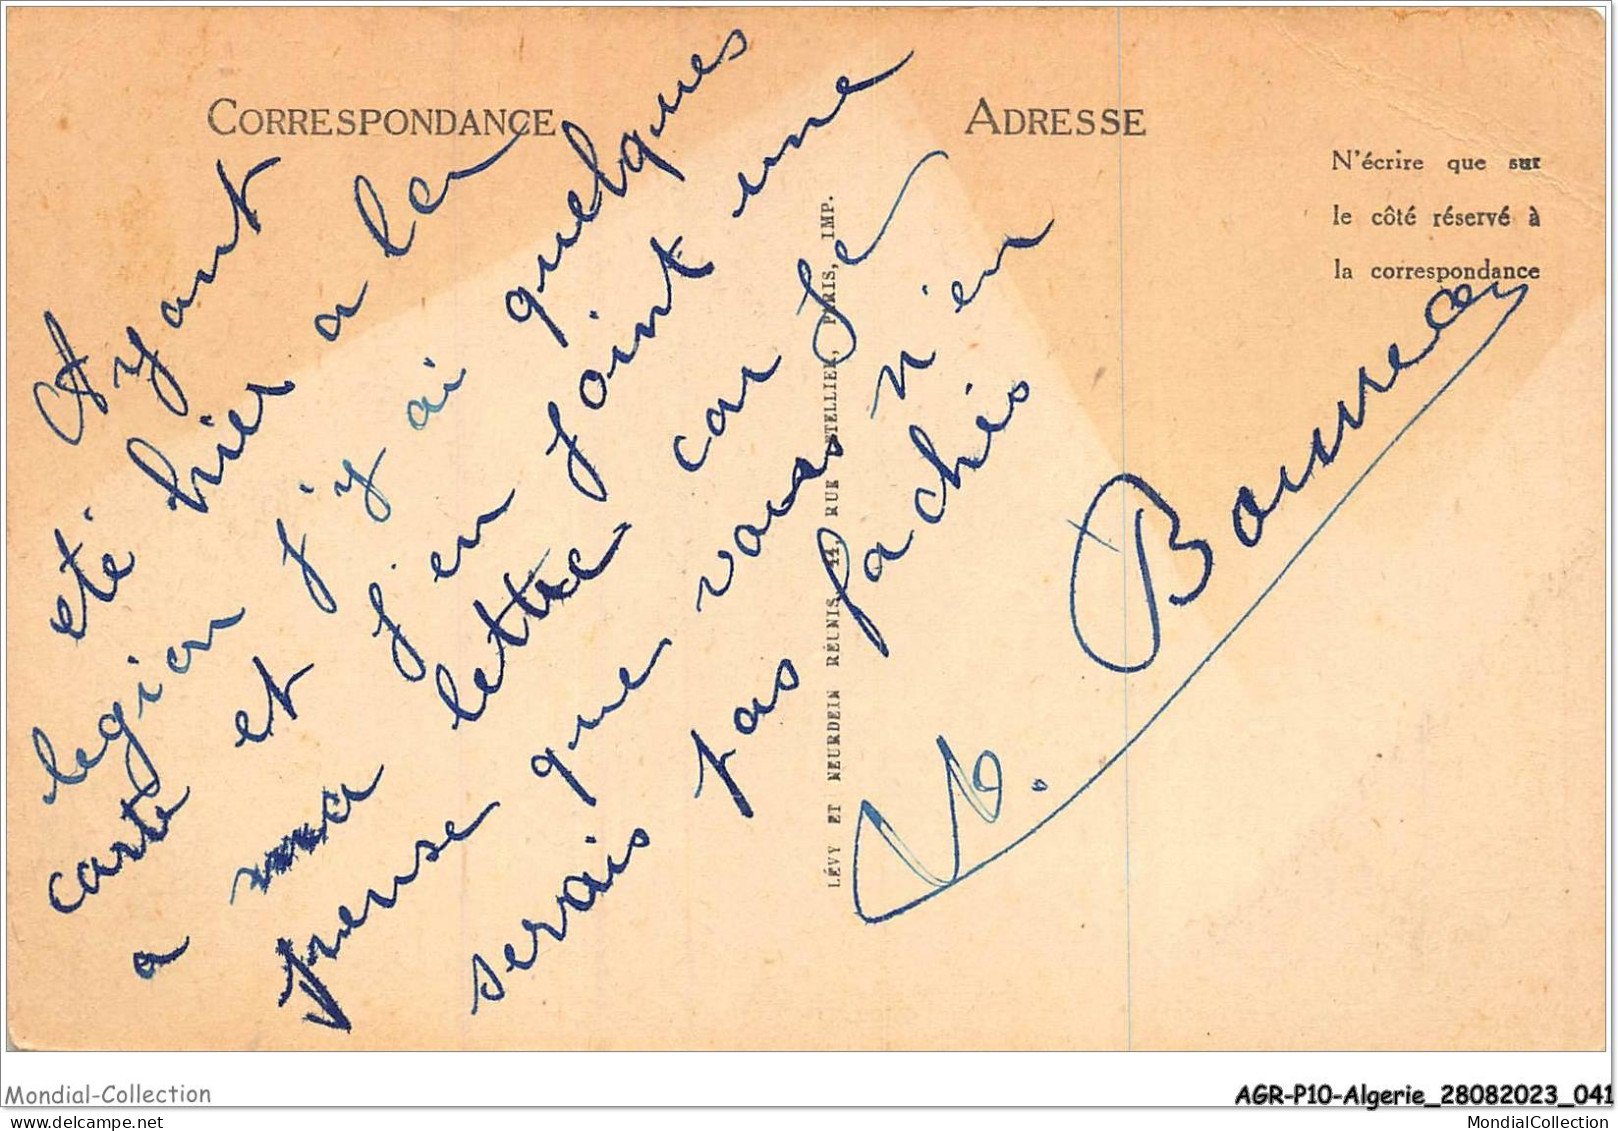 CORRESPONDANCE
ADRESSE
N'écrire que sur
le côté réservé à
la correspondance
Ayant
eté hier a la
legion j'y ai quelques
carte et j'en joint une
a ma lettre car je
pense que vous n'en
serais pas fachés
LÉVY ET NEURDEIN RÉUNIS, 44, RUE LETELLIER, PARIS, IMP.
Mondial-Collection
AGR-P10-Algerie_28082023_041
MondialCollection